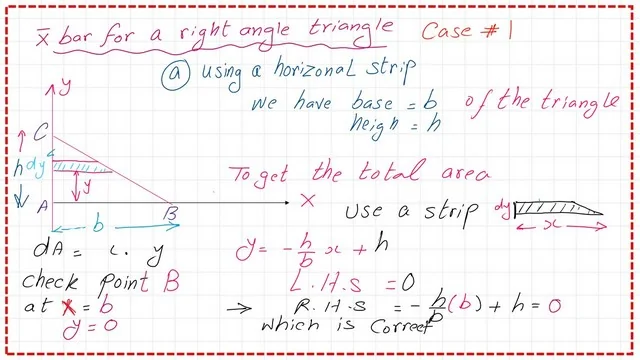 x̅ bar for a right angle triangle Case #1
ⓐ using a horizonal strip
we have base = b of the triangle
heigh = h
y
C
h dy
y
To get the total area
A
B
x
b
Use a strip dy
x
dA = x. y
y = -h/b x + h
check point B
L.H.S = 0
at x = b → R.H.S = -h/b (b) + h = 0
y = 0
which is Correct